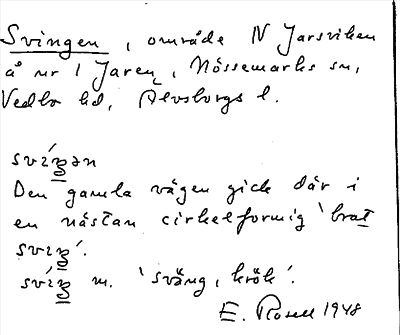 Svingen, område N Jarsviken
å nr 1 Jaren, Nössemarks sn,
Vedbo hd, Älvsborgs l.
svíŋən
Den gamla vägen gick där i
en nästan cirkelformig 'brat
sviŋ'.
svíŋ m. 'sväng, krök'.
E. Rosell 1948